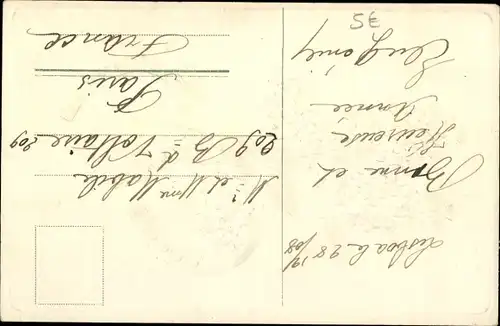 Lisboa le 28 12/08
Bonne et
Heureuse
Année
M. et Mme Mabile
209 Bd Voltaire 209
Paris
France
5E